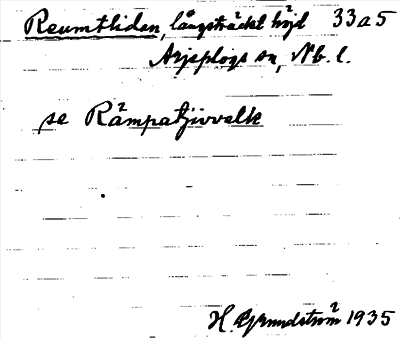 Reumtliden, långsträckt höjd 33a5
Arjeplogs sn, Nb. l.
se Råmpatjivvalk
H. Grundström 1935